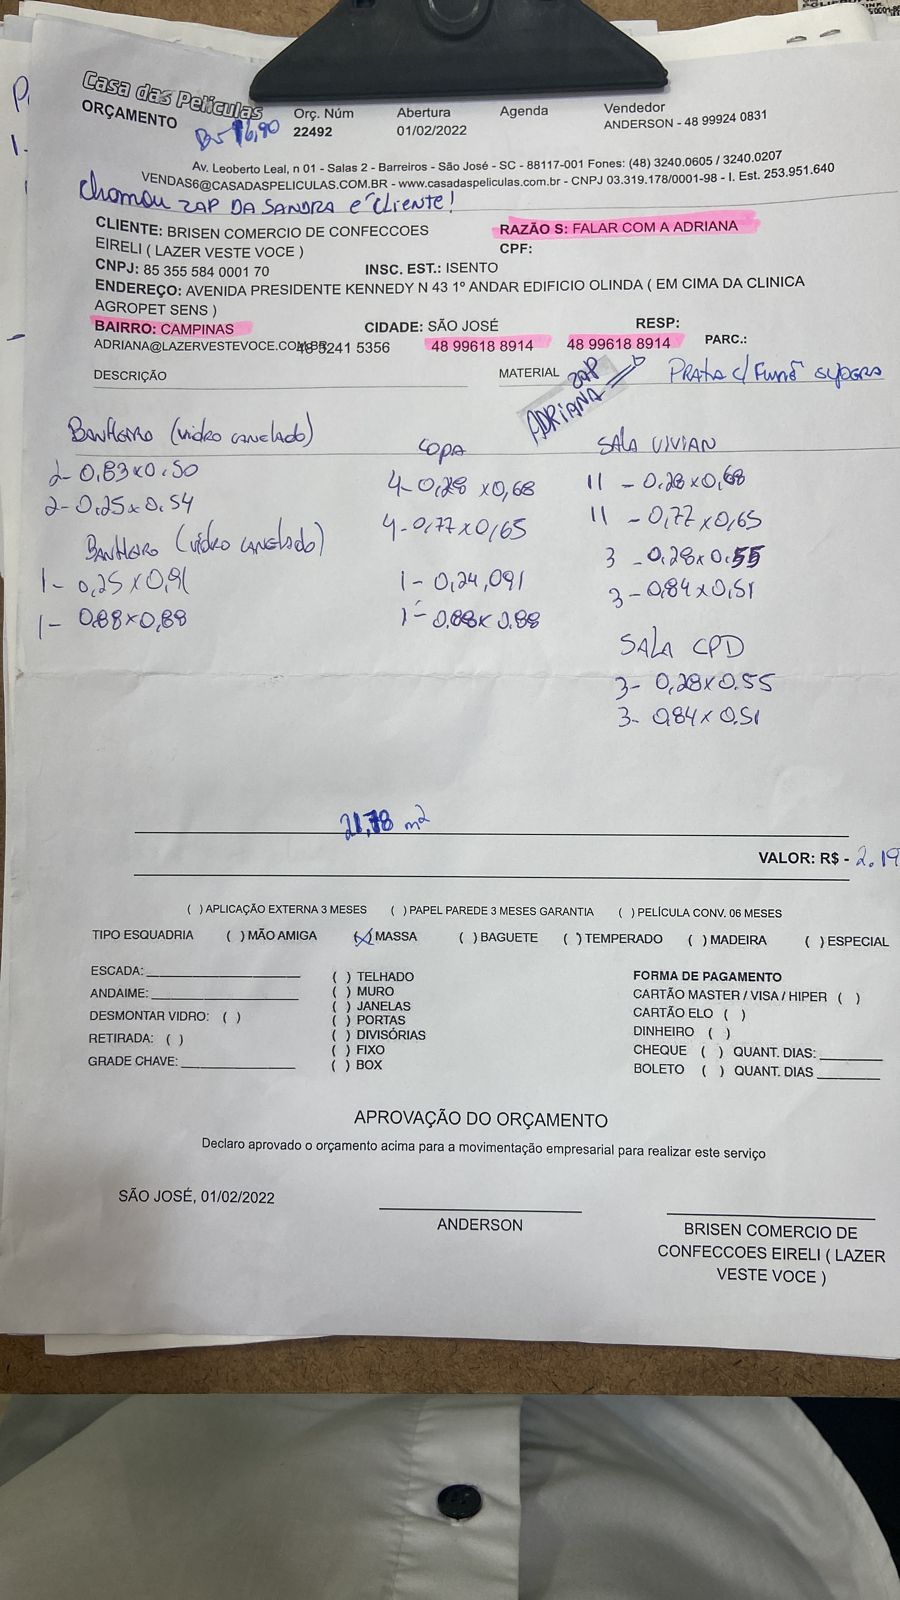 Casa das Películas
ORÇAMENTO
Orç. Núm
22492
Abertura
01/02/2022
Agenda
Vendedor
ANDERSON - 48 99924 0831
16,90
Av. Leoberto Leal, n 01 - Salas 2 - Barreiros - São José - SC - 88117-001 Fones: (48) 3240.0605 / 3240.0207
VENDAS6@CASADASPELICULAS.COM.BR - www.casadaspeliculas.com.br - CNPJ 03.319.178/0001-98 - I. Est. 253.951.640
chamou ZAP DA SANDRA é cliente!
CLIENTE: BRISEN COMERCIO DE CONFECCOES
EIRELI ( LAZER VESTE VOCE )
RAZÃO S: FALAR COM A ADRIANA
CPF:
CNPJ: 85 355 584 0001 70
INSC. EST.: ISENTO
ENDEREÇO: AVENIDA PRESIDENTE KENNEDY N 43 1º ANDAR EDIFICIO OLINDA ( EM CIMA DA CLINICA
AGROPET SENS )
BAIRRO: CAMPINAS
CIDADE: SÃO JOSÉ
RESP:
ADRIANA@LAZERVESTEVOCE.COM.BR
48 3241 5356
48 99618 8914
48 99618 8914
PARC.:
DESCRIÇÃO
MATERIAL
ZAP
ADRIANA
PRATA c/ Fumê
BANHEIRO (vidro canelado)
2- 0,83x0,50
2- 0,25x0,54
BANHEIRO (vidro canelado)
1- 0,25x0,91
1- 0.88x0,88
COPA
4- 0,28x0,68
4- 0,77x0,65
1- 0,24,091
1- 0,88x0.88
SALA VIVIAN
11 - 0,28x0,68
11 - 0,77x0,65
3 - 0,28x0.55
3- 0,84x0,51
SALA CPD
3- 0,28x0.55
3- 0,84x0.51
21,78 m²
VALOR: R$ - 2.19
( ) APLICAÇÃO EXTERNA 3 MESES ( ) PAPEL PAREDE 3 MESES GARANTIA ( ) PELÍCULA CONV. 06 MESES
TIPO ESQUADRIA ( ) MÃO AMIGA (X) MASSA ( ) BAGUETE ( ) TEMPERADO ( ) MADEIRA ( ) ESPECIAL
ESCADA:
ANDAIME:
DESMONTAR VIDRO: ( )
RETIRADA: ( )
GRADE CHAVE:
( ) TELHADO
( ) MURO
( ) JANELAS
( ) PORTAS
( ) DIVISÓRIAS
( ) FIXO
( ) BOX
FORMA DE PAGAMENTO
CARTÃO MASTER / VISA / HIPER ( )
CARTÃO ELO ( )
DINHEIRO ( )
CHEQUE ( ) QUANT. DIAS:
BOLETO ( ) QUANT. DIAS
APROVAÇÃO DO ORÇAMENTO
Declaro aprovado o orçamento acima para a movimentação empresarial para realizar este serviço
SÃO JOSÉ, 01/02/2022
ANDERSON
BRISEN COMERCIO DE
CONFECCOES EIRELI ( LAZER
VESTE VOCE )